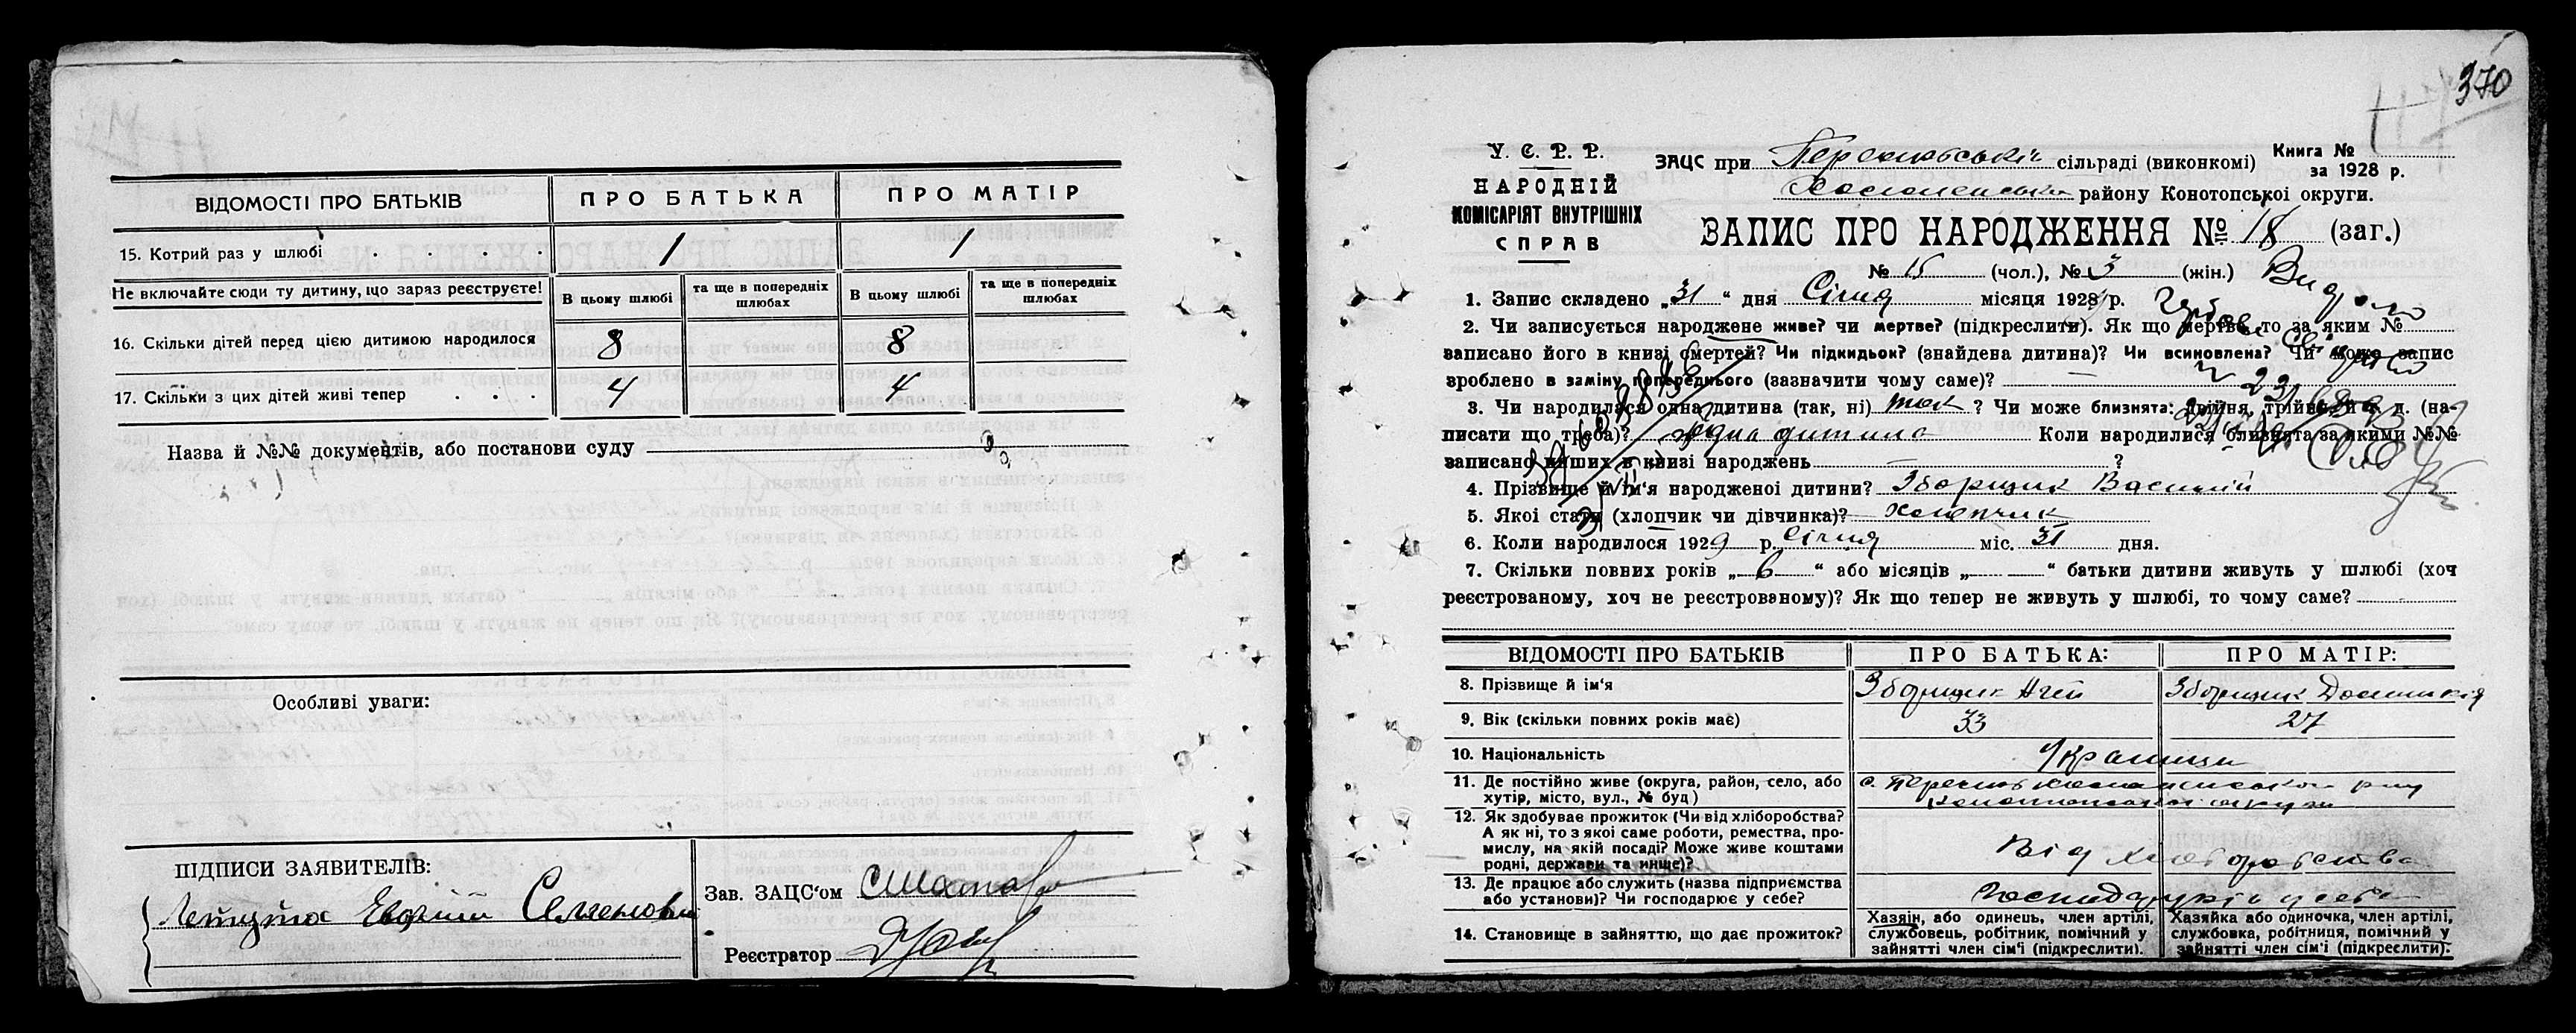 ВІДОМОСТІ ПРО БАТЬКІВ
ПРО БАТЬКА
ПРО МАТІР
15. Котрий раз у шлюбі . . . .
1
1
Не включайте сюди ту дитину, що зараз реєструєте!
В цьому шлюбі
та ще в попередніх шлюбах
В цьому шлюбі
та ще в попередніх шлюбах
16. Скільки дітей перед цією дитиною народилося
8
8
17. Скільки з цих дітей живі тепер . . .
4
4
Назва й №№ документів, або постанови суду
Особливі уваги:
ПІДПИСИ ЗАЯВИТЕЛІВ:
Зав. ЗАЦС'ом
Реєстратор
370
У. С. Р. Р.
НАРОДНІЙ
КОМІСАРІЯТ ВНУТРІШНІХ
СПРАВ
ЗАЦС при сільраді (виконкомі)
Книга №
за 1928 р.
району Конотопської округи.
ЗАПИС ПРО НАРОДЖЕННЯ № 18 (заг.)
№ 15 (чол.), № 3 (жін.)
1. Запис складено „31“ дня Січня місяця 1928 р.
2. Чи записується народжене живе? чи мертве? (підкреслити). Як що мертве, то за яким №
записано його в книзі смертей? Чи підкидьок? (знайдена дитина)? Чи всиновлена? Чи може запис
зроблено в заміну попереднього (зазначити чому саме)? —
3. Чи народилася одна дитина (так, ні) так ? Чи може близнята: двійня, трійня, и т. д. (на-
писати що треба)? одна дитина Коли народилися близнята за якими №№
записано инших в книзі народжень — ?
4. Прізвище й ім'я народженої дитини? Зборщик Василій
5. Якої статі (хлопчик чи дівчинка)? хлопчик
6. Коли народилося 1929 р. Січня міс. 31 дня.
7. Скільки повних років „6“ або місяців „ — “ батьки дитини живуть у шлюбі (хоч
реєстрованому, хоч не реєстрованому)? Як що тепер не живуть у шлюбі, то чому саме?
ВІДОМОСТІ ПРО БАТЬКІВ
ПРО БАТЬКА:
ПРО МАТІР:
8. Прізвище й ім'я
Зборщик Агей
Зборщик
9. Вік (скільки повних років має)
33
27
10. Національність
Українци
11. Де постійно живе (округа, район, село, або
хутір, місто, вул., № буд)
12. Як здобуває прожиток (Чи від хліборобства?
А як ні, то з якої саме роботи, ремества, про-
мислу, на якій посаді? Може живе коштами
родні, держави та инше)?
Від хліборобства
13. Де працює або служить (назва підприємства
або установи)? Чи господарює у себе?
14. Становище в зайняттю, що дає прожиток?
Хазяїн, або одинець, член артілі,
службовець, робітник, помічний у
зайнятті член сім'ї (підкреслити).
Хазяйка або одиночка, член артілі,
службовка, робітниця, помічний у
зайнятті член сім'ї (підкреслити).